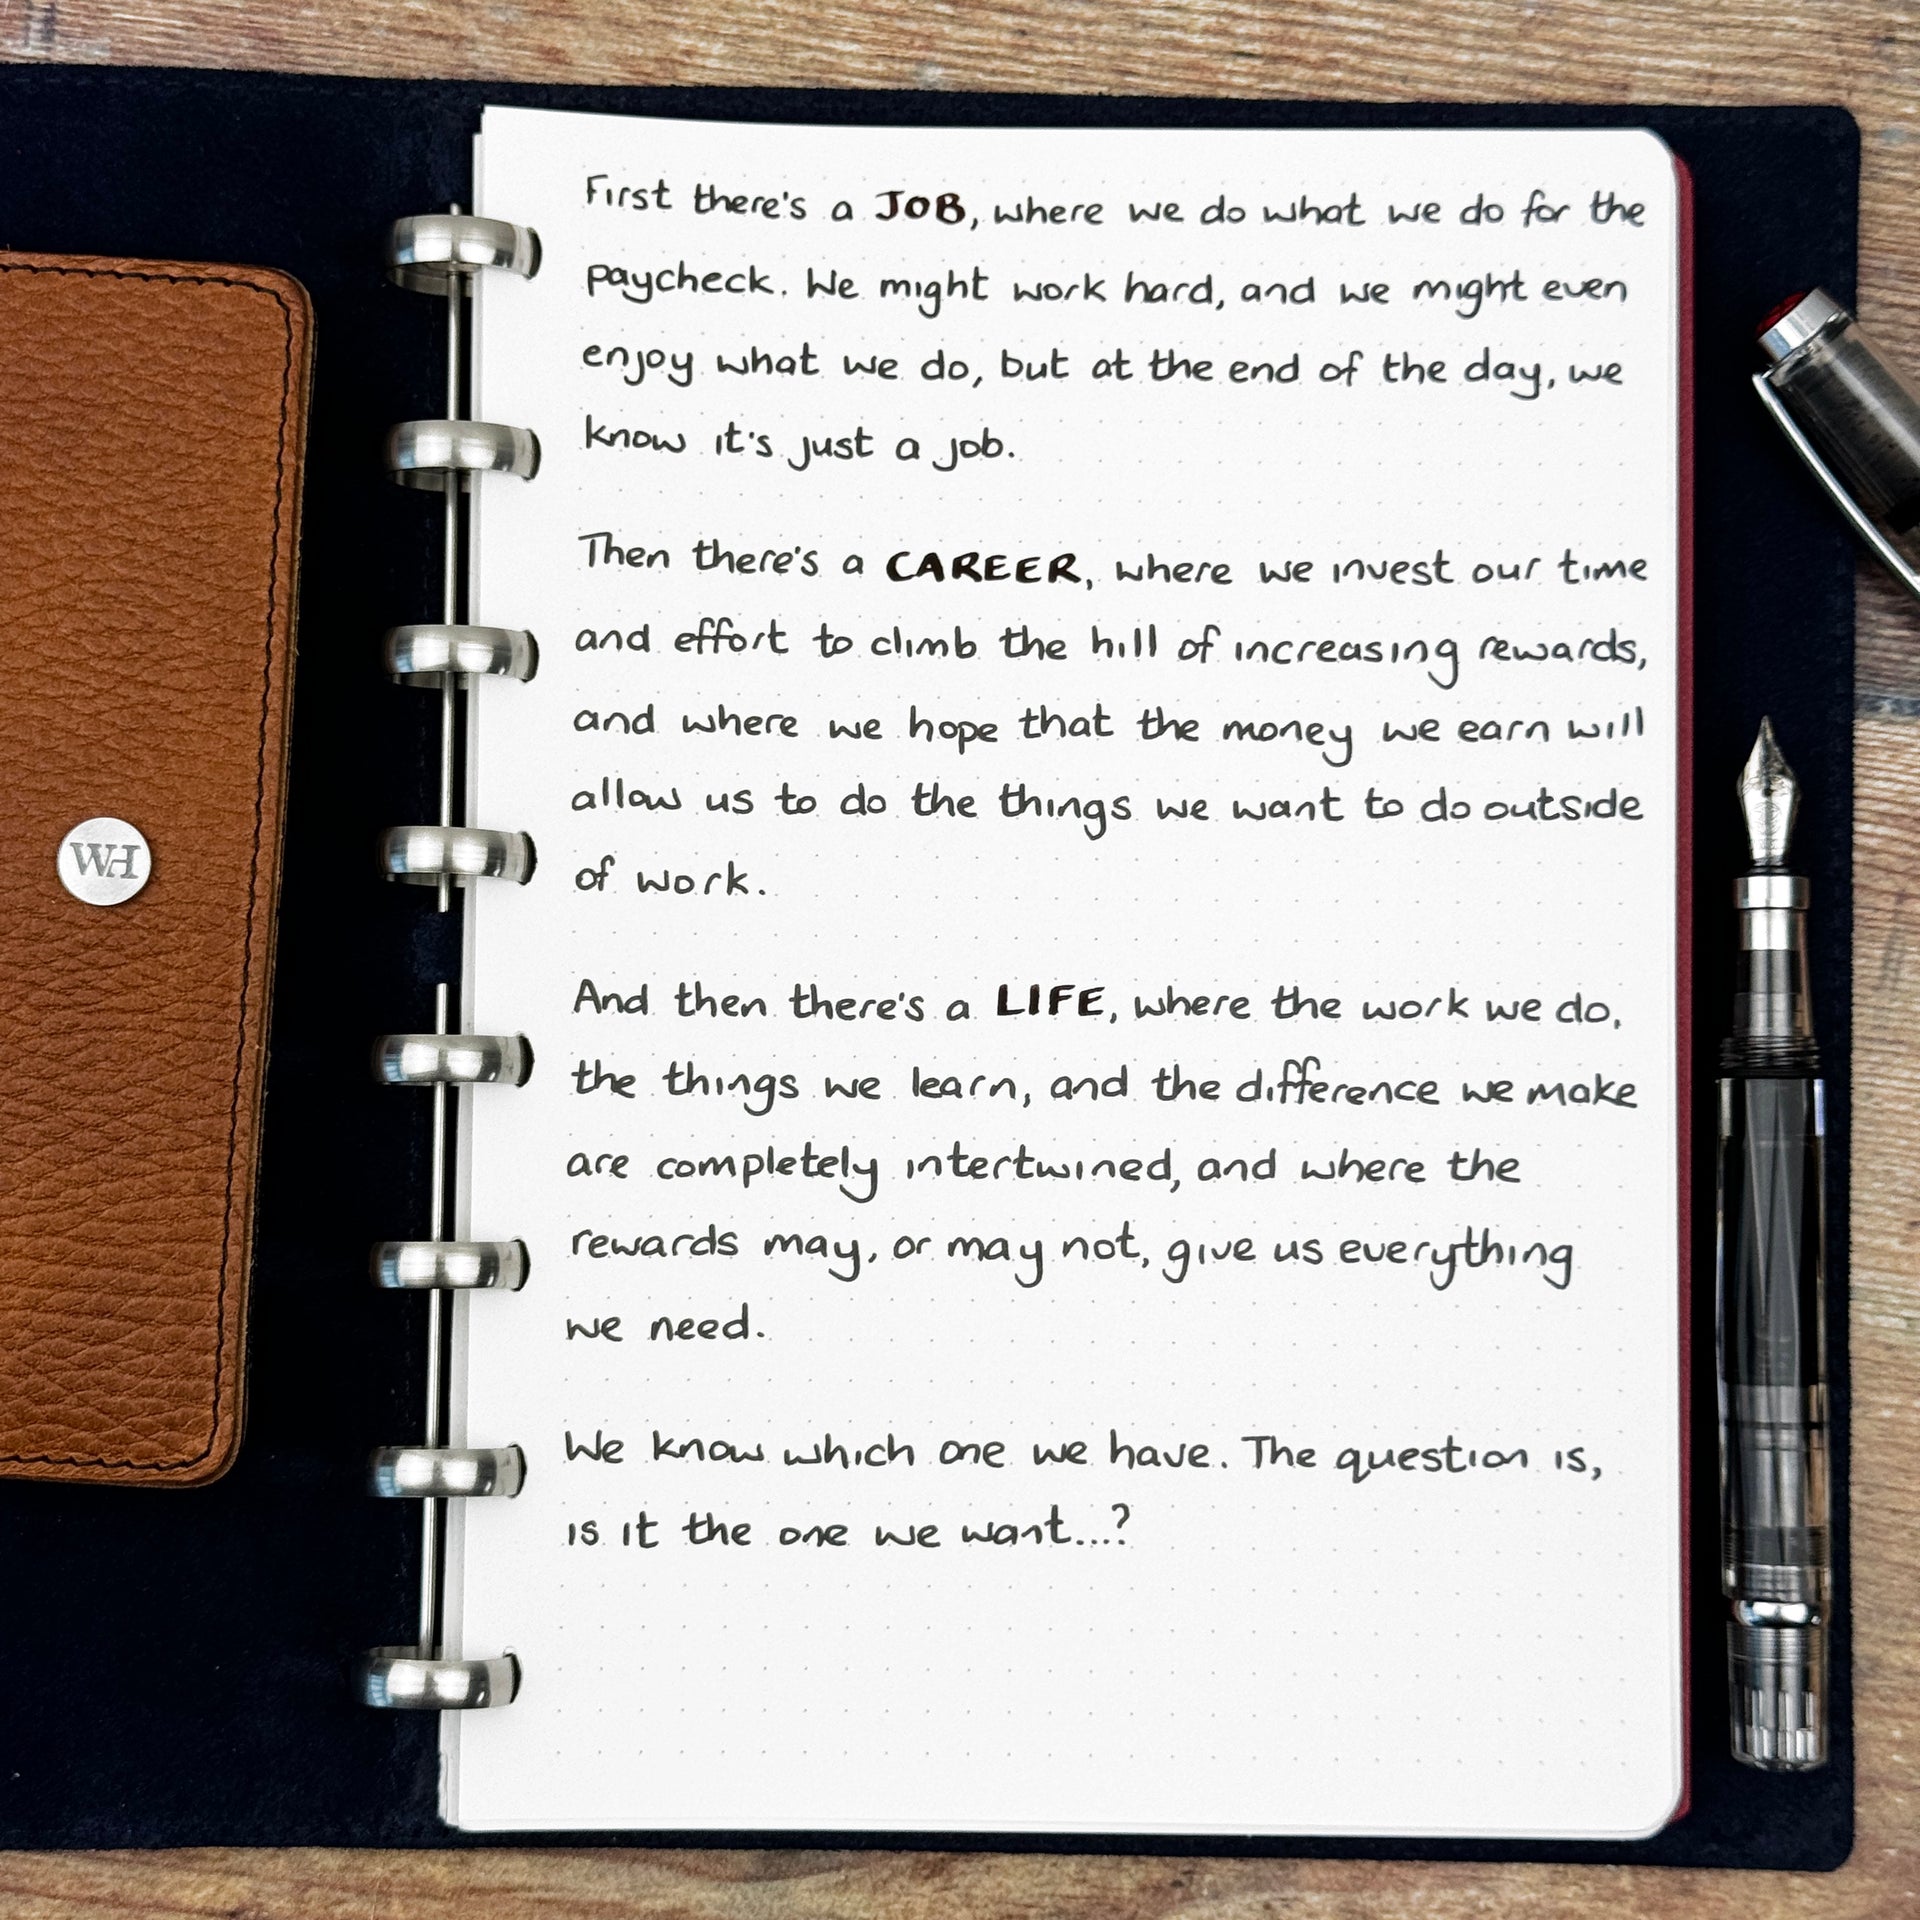 First there's a JOB, where we do what we do for the
paycheck. We might work hard, and we might even
enjoy what we do, but at the end of the day, we
know it's just a job.
Then there's a CAREER, where we invest our time
and effort to climb the hill of increasing rewards,
and where we hope that the money we earn will
allow us to do the things we want to do outside
of work.
And then there's a LIFE, where the work we do,
the things we learn, and the difference we make
are completely intertwined, and where the
rewards may, or may not, give us everything
we need.
We know which one we have. The question is,
is it the one we want...?
WH